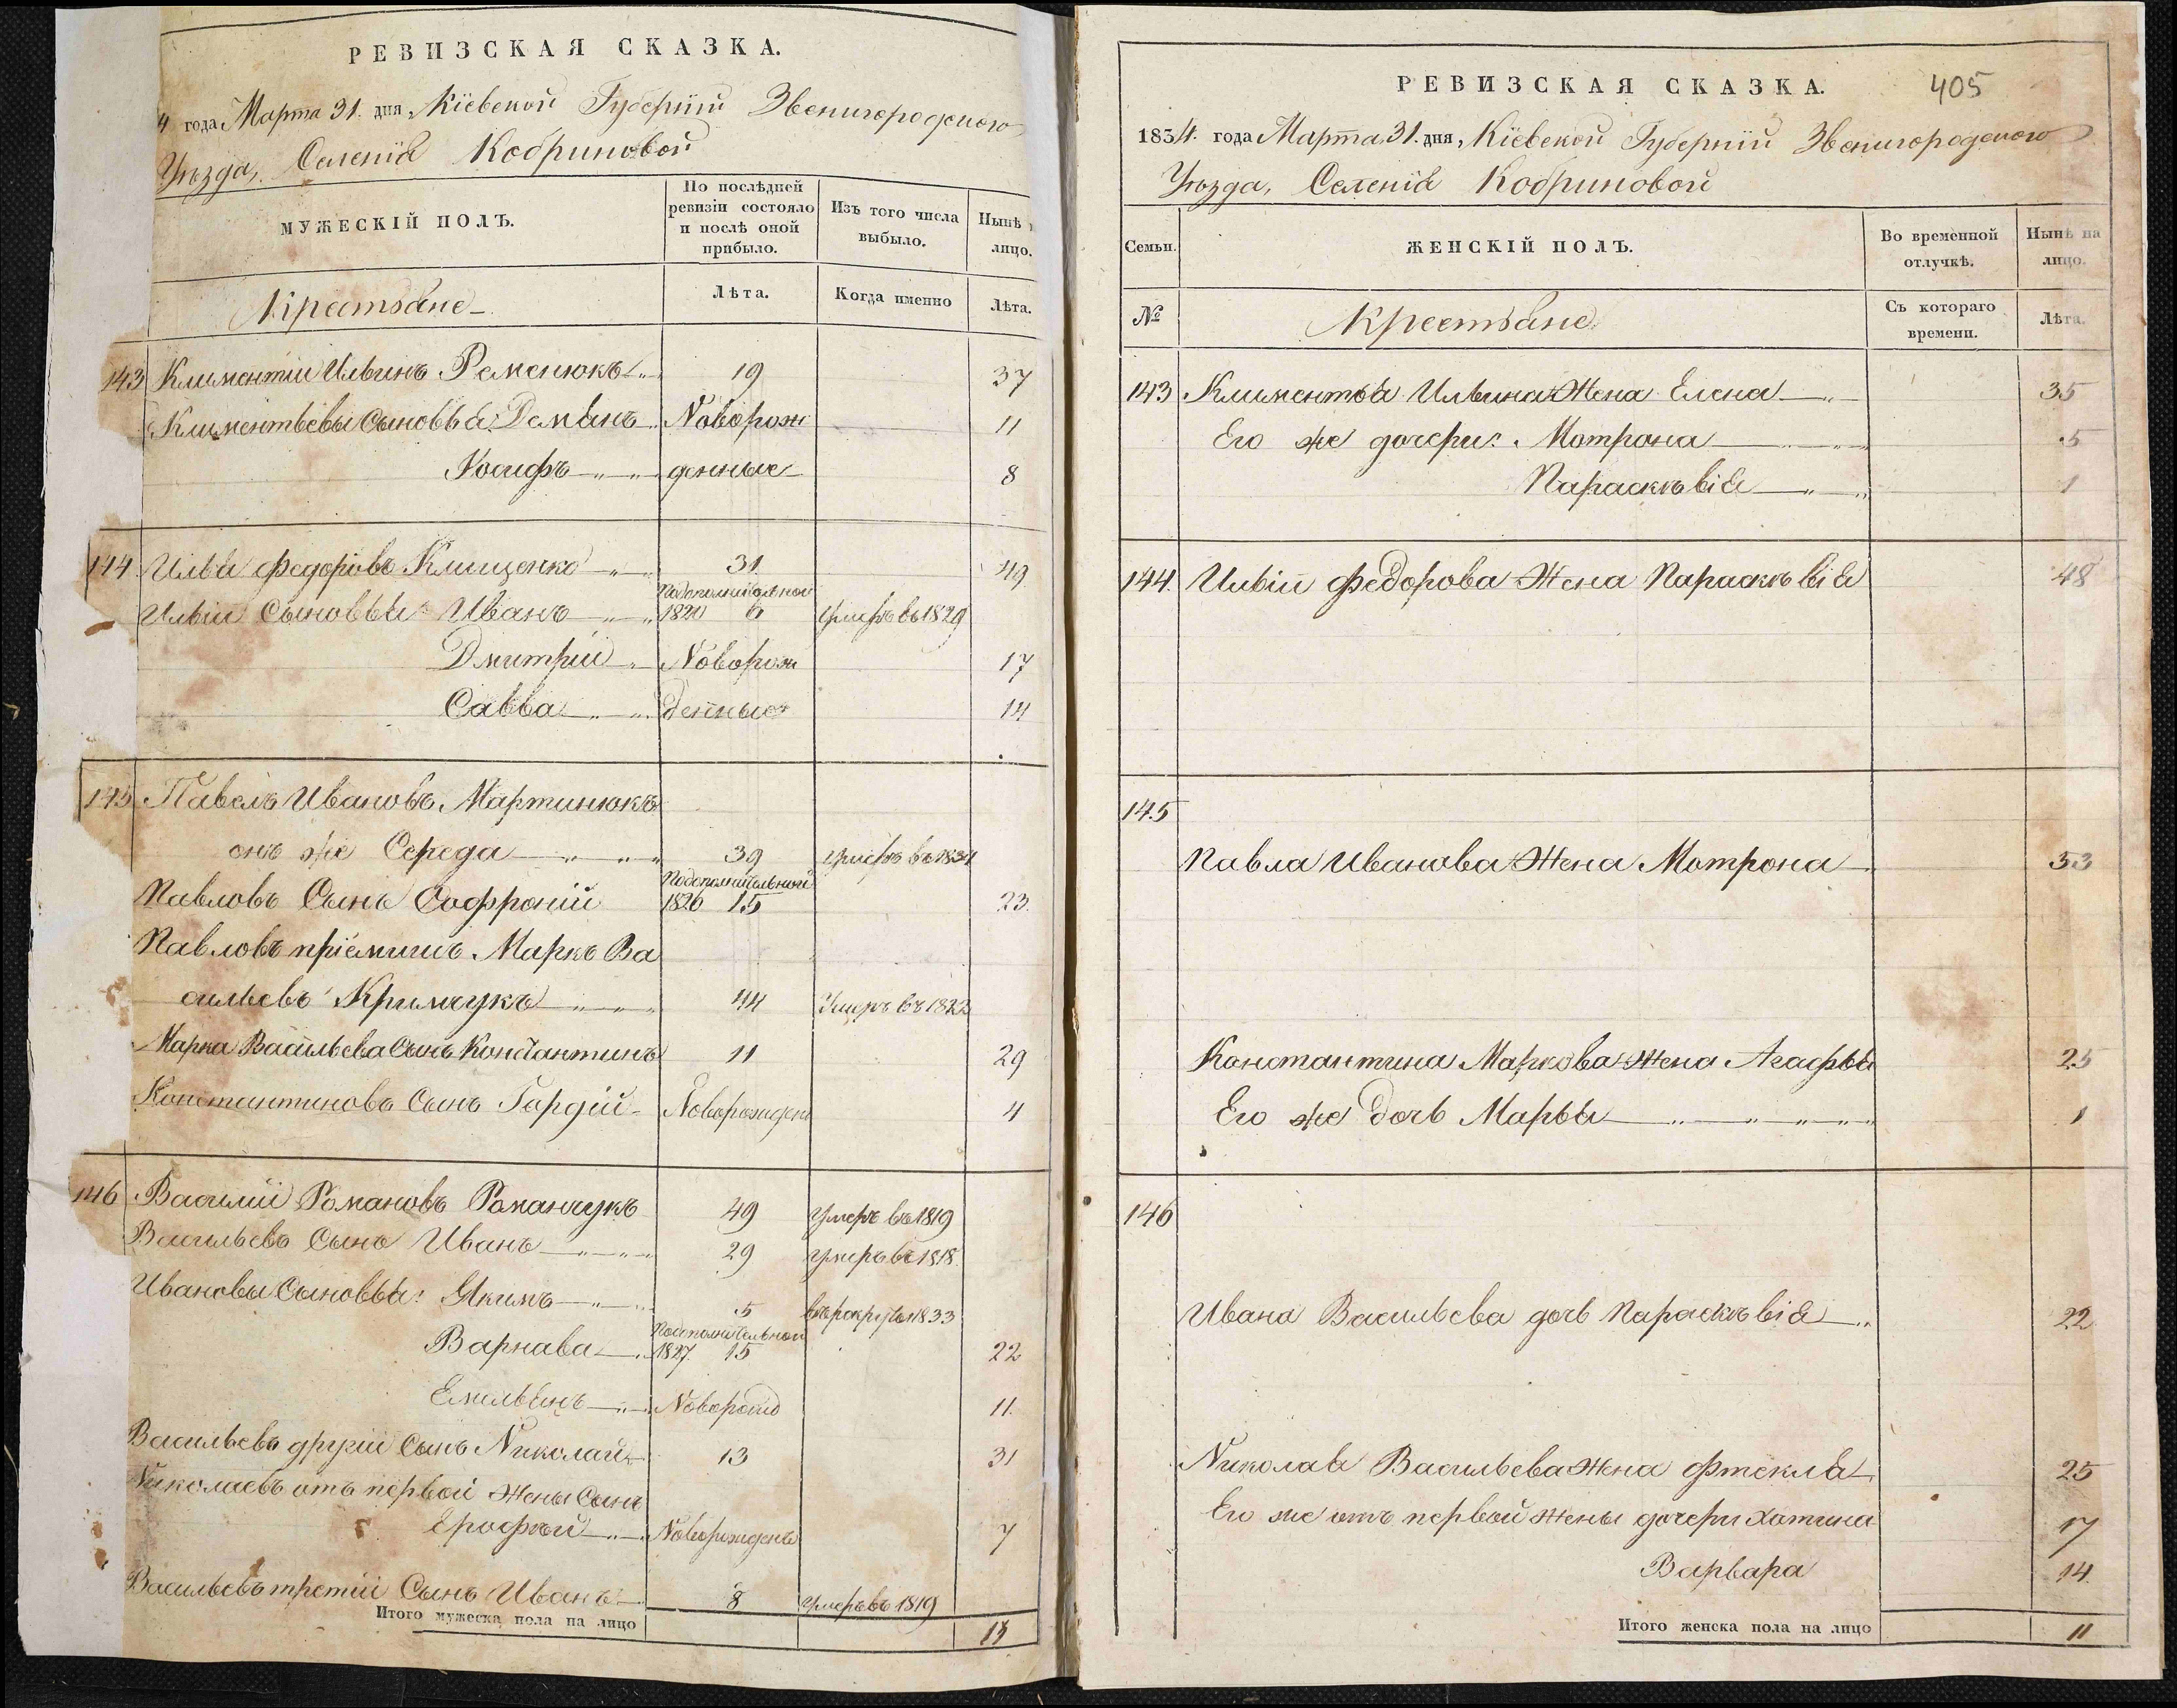 РЕВИЗСКАЯ СКАЗКА.
4 года Марта 31. дня, Кіевской Губерніи Звенигородского
Уѣзда, Селенія Кобриновой
МУЖЕСКІЙ ПОЛЪ.
По послѣдней ревизіи состояло и послѣ оной прибыло.
Изъ того числа выбыло.
Нынѣ лицо.
Крестьяне
Лѣта.
Когда именно
Лѣта.
143 Климентій Ильинъ Ременюкъ 19 37
Климентьевы Сыновья: Демянъ Новорож 11
Іосифъ денные 8
144 Илья Федоровъ Клищенко 31 49
Ильи Сыновья: Иванъ Подополнительной 1820 6 Умеръ въ 1829
Дмитрій Новорож 17
Савва денные 14
145 Павелъ Ивановъ Мартинюкъ
онъ же Середа 39 умеръ въ 1831
Павловъ Сынъ Софроній Подополнительной 1826 15 23.
Павловъ пріемишъ Маркъ Ва
сильевъ Кримчукъ 44 Умеръ въ 1822
Марка Васильева Сынъ Константинъ 11 29
Константиновъ Сынъ Гордій Новорожден 4
146 Василій Романовъ Романчукъ 49 Умеръ въ 1819
Васильевъ Сынъ Иванъ 29 умеръ въ 1818.
Ивановы Сыновья: Якимъ 5 въ рекруты 1833
Варнава Подополнительной 1827. 15 22
Емельянъ Новорожд 11.
Васильевъ другій Сынъ Николай 13 31
Николаевъ отъ первой жены Сынъ
Ерофѣй Новорожденъ 7
Васильевъ третій Сынъ Иванъ 8 Умеръ въ 1819
Итого мужеска пола на лицо 13
405
РЕВИЗСКАЯ СКАЗКА.
1834. года Марта 31. дня, Кіевской Губерніи Звенигородского
Уѣзда, Селенія Кобриновой
Семьи.
ЖЕНСКІЙ ПОЛЪ.
Во временной отлучкѣ.
Нынѣ на лицо.
№
Крестьяне
Съ котораго времени.
Лѣта.
143 Климентья Ильина Жена Елена 35
Его же дочери: Мотрона 5
Параскѣвія 1
144. Ильи Федорова Жена Параскѣвія 48
145
Павла Иванова Жена Мотрона 53
Константина Маркова Жена Агафья 25
Его же дочь Марья 1
146
Ивана Васильева дочь Параскѣвія 22
Николая Васильева Жена Фтекля 25
Его же отъ первой жены дочери 17
Варвара 14.
Итого женска пола на лицо 11